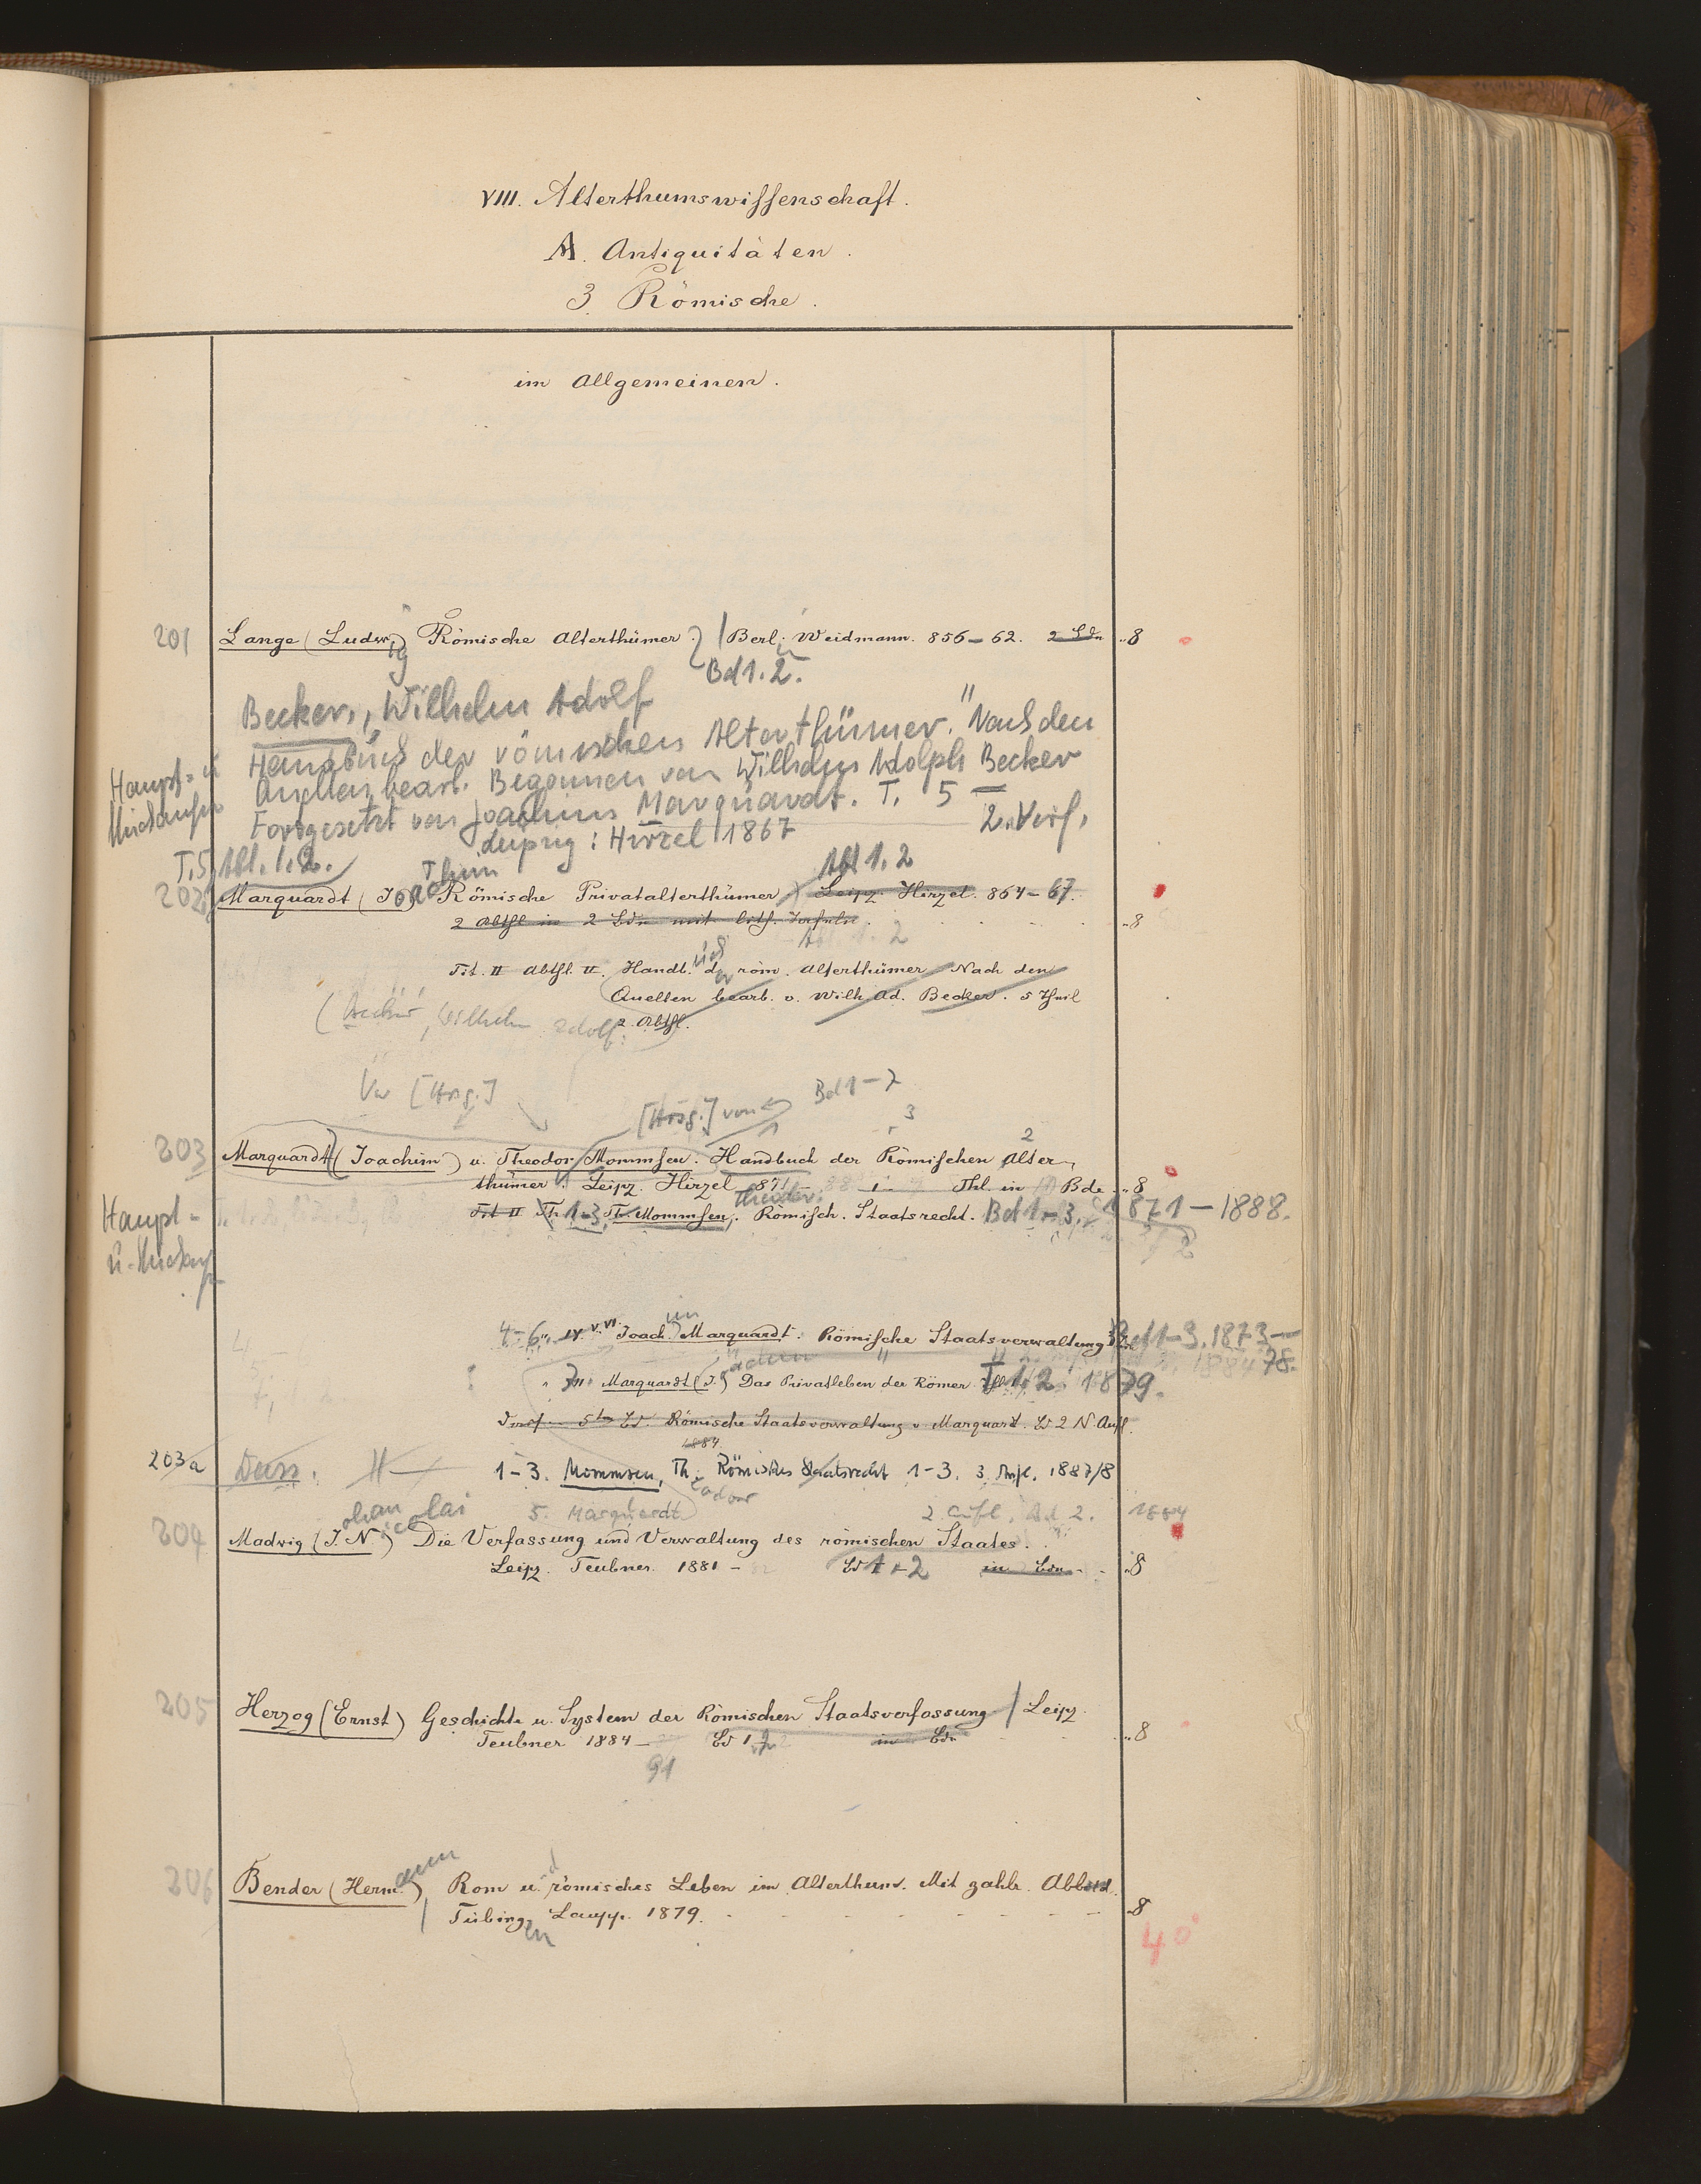 VIII. Alterthumswissenschaft.
A. Antiquitäten.
3 Römische.
im Allgemeinen.
201 Lange (Ludwig) Römische Alterthümer. / Berl. Weidmann. 856–62. 2 Bde „8
Bd 1. 2.
Becker, Wilhelm Adolf
Handbuch der römischen Alterthümer. Nach den
Quellen bearb. Begonnen von Wilhelm Adolph Becker
Fortgesetzt von Joachim Marquardt. T. 5
Leipzig: Hirzel 1867
2. Verf.
Haupt- u
T. 5, Abt. 1. 2.
Abt 1. 2
202 Marquardt (Joachim) Römische Privatalterthümer Leipz. Hirzel. 864–67.
2 Abthl in 2 Bdn mit lith. Tafeln „8
Abt. 1. 2
Tit. II Abthl. II. Handbuch der röm. Alterthümer Nach den
Quellen bearb. v. Wilh. Ad. Becker. 5 Theil
2. Abthl.
(Becker, Wilhelm Adolf:
[Hrsg.]
[Hrsg.] von Bd 1–7
3
2
203 Marquardt (Joachim) u. Theodor Mommsen. Handbuch der Römischen Alter-
thümer. Leipz. Hirzel 871 Thl. in Bde „8
Haupt-
Tit II Th. 1-3, Th. Mommsen, Theodor: Römisch. Staatsrecht. Bd 1–3, 1871–1888.
4-6. IV. V. VI. Joachim Marquardt. Römische Staatsverwaltung Bd 1–3. 1873–
78.
7 Marquardt (J.) Das Privatleben der Römer. T. 1. 2. 1879.
5ten Bd. Römische Staatsverwaltung v. Marquardt. Bd 2 N. Aufl.
1884.
203a Dass. 1–3. Mommsen, Theodor Römisches Staatsrecht 1–3. 3. Aufl. 1887/8
5. Marquardt 2. Aufl. Bd 2. 1884
204 Madvig (Johan Nicolai) Die Verfassung und Verwaltung des römischen Staates.
Leipz. Teubner. 1881 – Bd 1 + 2 in Bdn „8
205 Herzog (Ernst) Geschichte u. System der Römischen Staatsverfassung / Leipz.
Teubner 1884– Bd 1. 2 in Bdn „8
91
206 Bender (Hermann) Rom und römisches Leben im Alterthum. Mit zahlr. Abbild.
Tübingen Laupp. 1879. „8
40